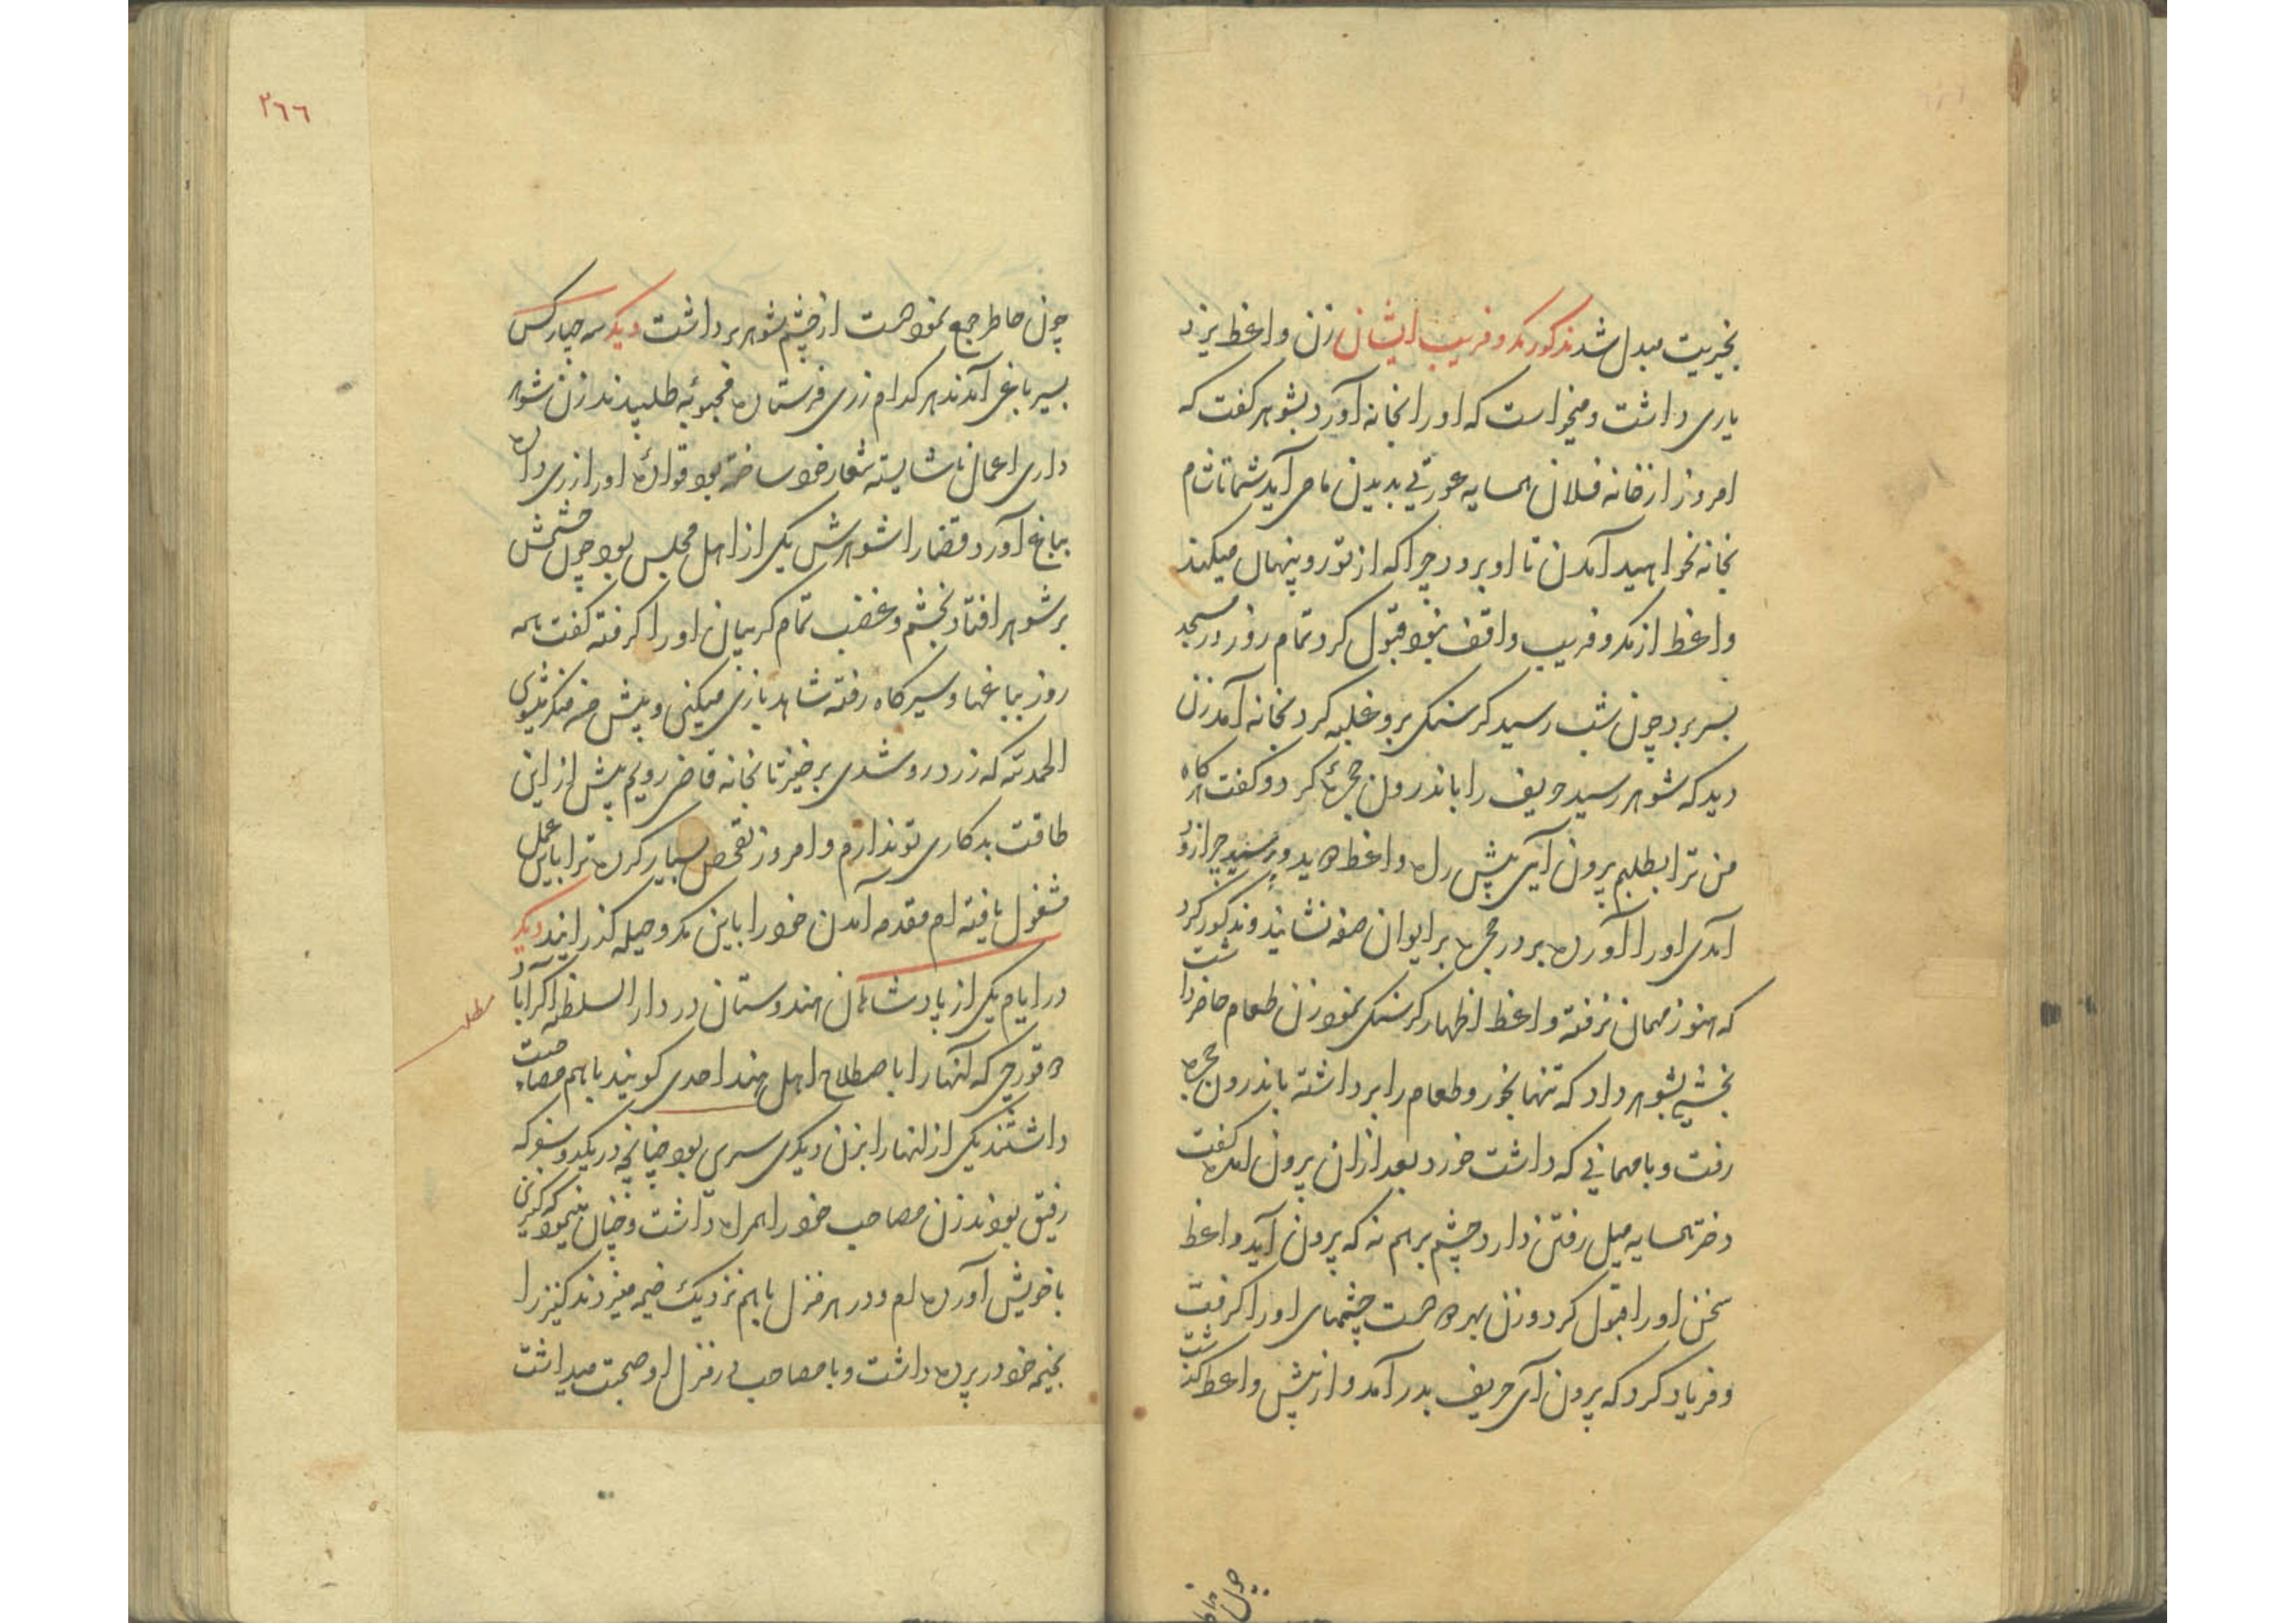 بخیریت مبدل شد مذکور مکر و فریب ایشان زن واعظ یزد
یاری داشت و میخواست که او را بخانه آورد بشوهر گفت که
امروز از خانه فلان همسایه عورتی بدیدن ما می آید شما تا شام
بخانه نخواهید آمدن تا او برود چرا که از تو رو پنهان میکند
واعظ از مکر و فریب واقف نبود قبول کرد تمام روز در مسجد
بسر برد چون شب رسید گرسنگی برو غلبه کرد بخانه آمد زن
دید که شوهر رسید حریف را باندرون حجرهٔ کرد و گفت هرگاه
من ترا بطلبم بیرون آیی پیش راه واعظ دوید و پرسید چرا زود
آمدی او را آورده بر در حجره بر ایوان صفه نشانید و مذکور کرد
که هنوز مهمان نرفته واعظ اظهار گرسنگی نمود زن طعام حاضر داشت
بخشی بشوهر داد که تنها بخور و طعام را برداشته باندرون حجره
رفت و با مهمانی که داشت خورد بعد از آن بیرون آمده گفت
دختر همسایه میل رفتن دارد چشم برهم نه که بیرون آید واعظ
سخن او را قبول کرد و زن بهر دو دست چشمهای او را گرفت
و فریاد کرد که بیرون آی حریف بدر آمد و از پیش واعظ گذشت
چون خاطر
۲۶۶
چون خاطر جمع نمود دست از چشم شوهر برداشت دیگر سه چهار کس
بسیر باغی آمدند هر کدام زری فرستاده محبوبه طلبیدند زن شوهر
داری اعمال ناشایسته شعار خود ساخته بود قوادهٔ او را زری داده
بباغ آورد قضا را شوهرش یکی از اهل مجلس بود چون چشمش
بر شوهر افتاد بخشم و غضب تمام گریبان او را گرفته گفت همه
روز بباغها و سیرگاه رفته شاهدبازی میکنی و پیش من منکر میشوی
الحمدلله که زرد رو شدی برخیز تا بخانه قاضی رویم پیش از این
طاقت بدکاری تو ندارم و امروز تفحص بسیار کرده ترا باین عمل
مشغول یافته ام مقدمه آمدن خود را باین مکر و حیله گذرانید دیگر
در ایام یکی از پادشاهان هندوستان در دار السلطنه اکرآباد
مطلب
دو قورچی که آنها را باصطلاح اهل هند احدی گویند باهم مصاحبت
داشتند یکی از آنها را بزن دیگری سری بود چنانچه در یکدو سفر که
رفیق بودند زن مصاحب خود را همراه داشت و چنان مینمود که کنیزی
با خویش آورده ام و در هر منزل باهم نزدیک خیمه میزدند کنیز را
بخیمه خود در پرده داشت و با مصاحب در منزل او صحبت میداشت